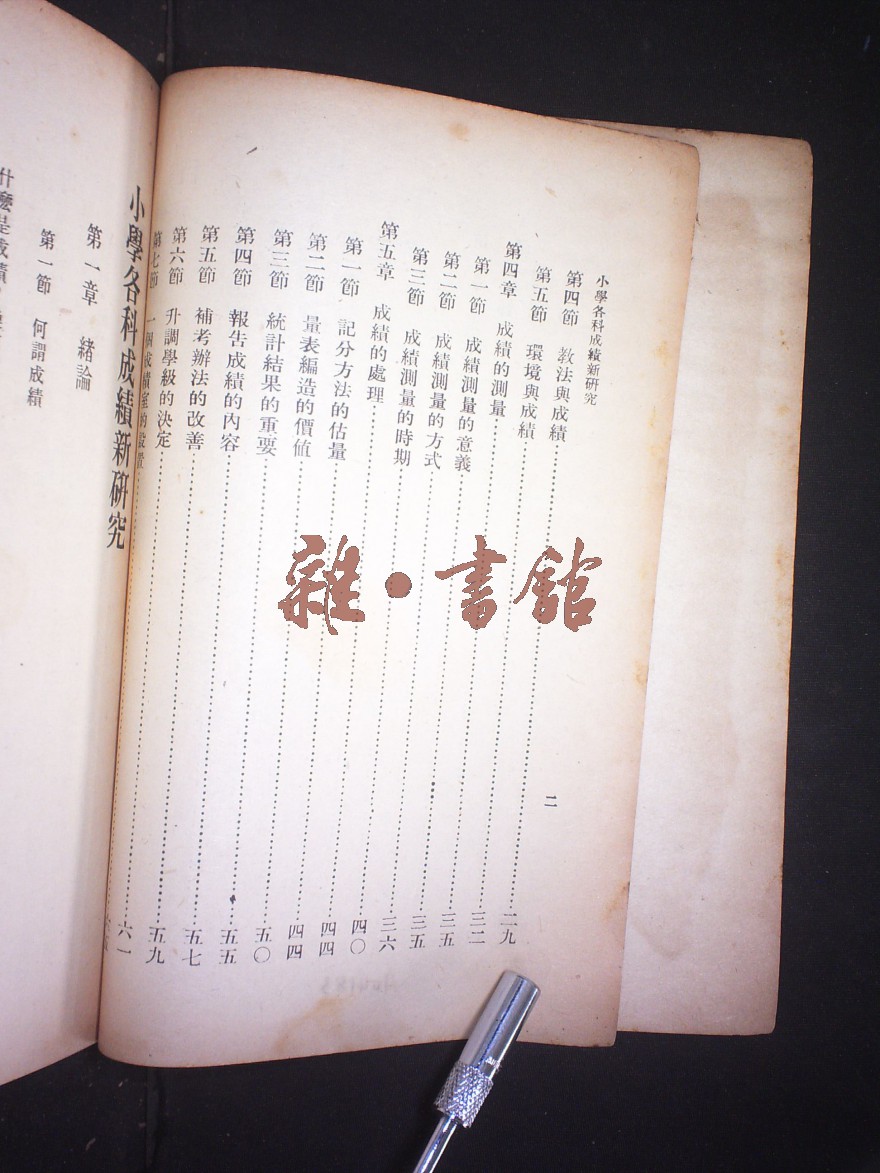 小學各科成績新研究
二
第四節 教法與成績……二九
第五節 環境與成績……三二
第四章 成績的測量……三五
第一節 成績測量的意義……三五
第二節 成績測量的方式……三六
第三節 成績測量的時期……四〇
第五章 成績的處理……四四
第一節 記分方法的估量……四四
第二節 量表編造的價值……五〇
第三節 統計結果的重要……五五
第四節 報告成績的內容……五七
第五節 補考辦法的改善……五九
第六節 升調學級的決定……六一
第七節 一個成績室的設置……
小學各科成績新研究
第一章 緒論
第一節 何謂成績
什麼是成績
雜•書館